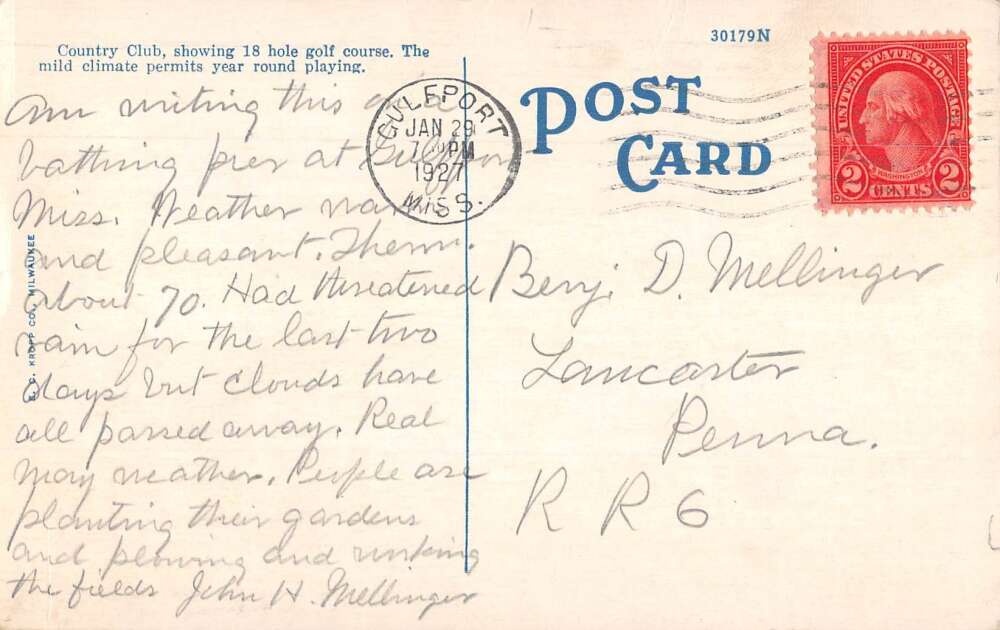 Country Club, showing 18 hole golf course. The
mild climate permits year round playing.
30179N
POST
CARD
GULFPORT
JAN 29
7 PM
1927
MISS.
UNITED STATES POSTAGE
WASHINGTON
2 CENTS 2
E. C. KROPP CO., MILWAUKEE
Am writing this on a
bathing pier at Gulfport
Miss. Weather warm
and pleasant. Therm.
about 70. Had threatened
rain for the last two
days but clouds have
all passed away. Real
May weather. People are
planting their gardens
and plowing and working
the fields John H. Mellinger
Benj. D. Mellinger
Lancaster
Penna.
R R 6